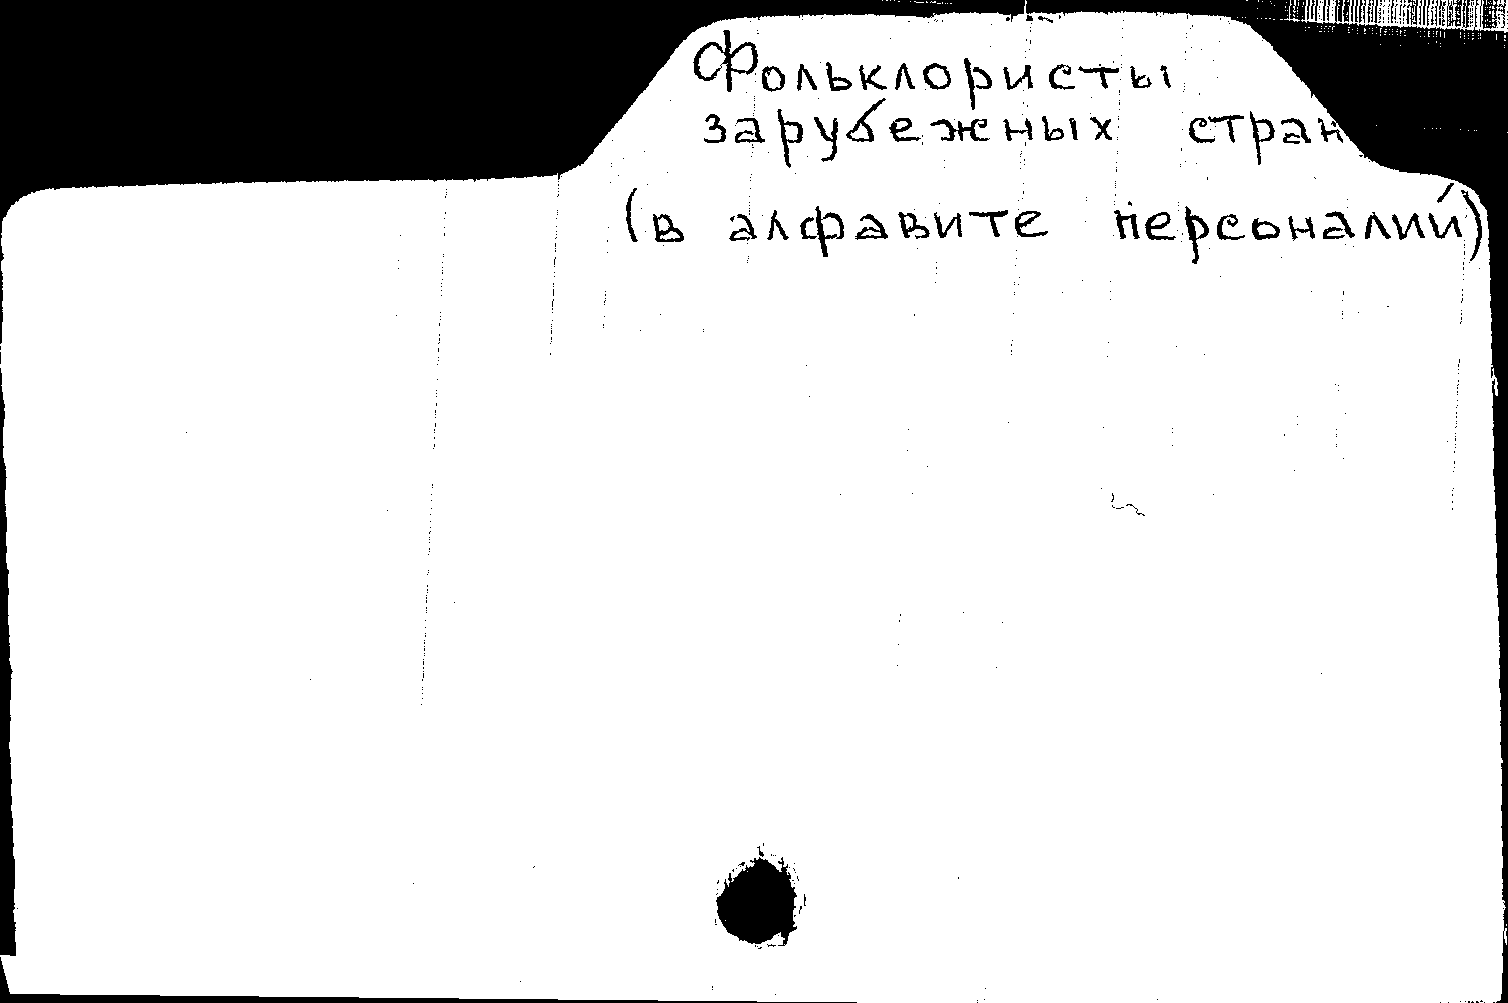 Фольклористы
зарубежных стран
(в алфавите персоналий)